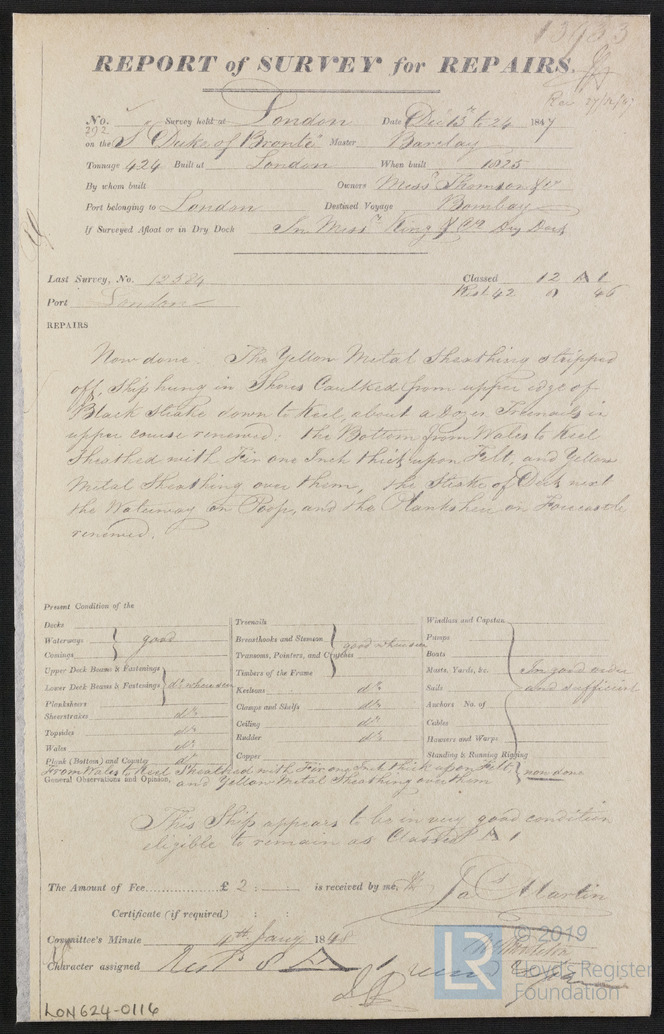 REPORT of SURVEY for REPAIRS.
No. 292 Survey held at London Date Decr 13th to 24 1847
on the S "Duke of Bronte" Master Barclay
Tonnage 424 Built at London When built 1825
By whom built Owners Messrs Thomson & Co
Port belonging to London Destined Voyage Bombay
If Surveyed Afloat or in Dry Dock In Messrs King & Co Dry Dock
Last Survey, No. 12384 Classed 12 A 1
Port London Rest 42 46
REPAIRS
Now done. The Yellow Metal Sheathing stripped
off, Ship hung in Shores Caulked from upper edge of
Black Strake down to Keel, about a Dozen Treenails in
upper course renewed. the Bottom from Wales to Keel
Sheathed with Fir one Inch thick upon Felt, and Yellow
Metal Sheathing over them, the Strake of Deck next
the Waterway on Poop, and the Planksheer on Forecastle
renewed.
Present Condition of the
Decks
Waterways good
Comings
Upper Deck Beams & Fastenings
Lower Deck Beams & Fastenings do where seen
Planksheers
Sheerstrakes do
Topsides do
Wales do
Plank (Bottom) and Counter do
Treenails
Breasthooks and Stemson good where seen
Transoms, Pointers, and Crutches
Timbers of the Frame
Keelsons do
Clamps and Shelfs do
Ceiling do
Rudder do
Copper
Windlass and Capstan
Pumps
Boats
Masts, Yards, &c. In good order
Sails and sufficient
Anchors No. of
Cables
Hawsers and Warps
Standing & Running Rigging
From Wales to Keel Sheathed with Fir one Inch thick upon Felt
General Observations and Opinion, and Yellow Metal Sheathing over them now done
This Ship appears to be in very good condition
eligible to remain as Classed A 1
The Amount of Fee £ 2 : is received by me, Jas Martin
Certificate (if required) : :
Committee's Minute 4th Jany 1848
Character assigned A 1
LON624-0116
LR
© 2019
Lloyd's Register
Foundation